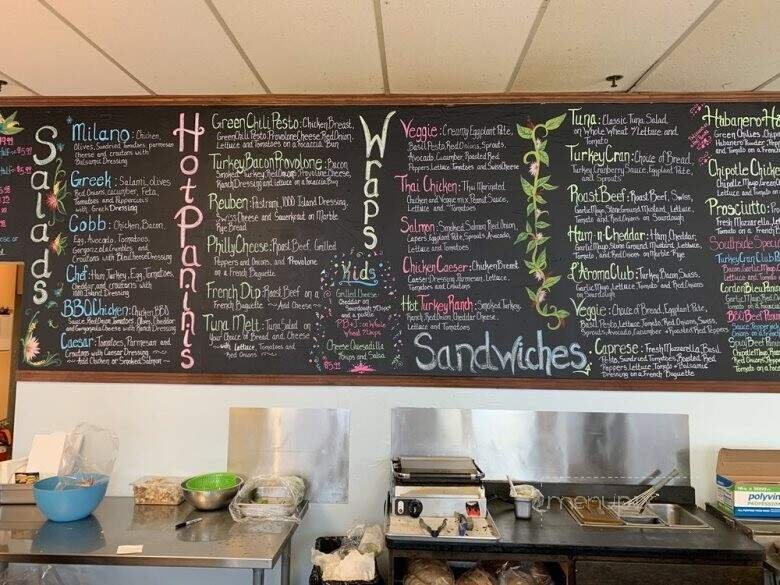 Salads
Milano: Chicken,
Olives, Sundried tomatoes, parmesan
Cheese and croutons with
Balsamic Dressing
Greek: Salami, olives
Red Onions, cucumber, Feta,
Tomatoes and Pepperoncis
with Greek Dressing
Cobb: Chicken, Bacon,
Egg, Avocado, Tomatoes,
Gorgonzola Crumbles, and
Croutons with Bleu Cheese Dressing
Chef: Ham, Turkey, Egg, Tomatoes,
Cheddar and croutons with
1000 Island Dressing
BBQ Chicken: Chicken, BBQ
Sauce, Red Onion, Olives, Cheddar
and Gorgonzola Cheese with Ranch Dressing
Caesar: Tomatoes, Parmesan and
Croutons with Caesar Dressing
Add Chicken or Smoked Salmon
Hot Paninis
Green Chili Pesto: Chicken Breast,
Green Chili Pesto, Provolone Cheese, Red Onion,
Lettuce and Tomatoes on Focaccia Bun
Turkey Bacon Provolone: Bacon,
Smoked Turkey, Red Onion, Provolone Cheese,
Ranch Dressing and Lettuce on Focaccia Bun
Reuben: Pastrami, 1000 Island Dressing,
Swiss Cheese and Sauerkraut on Marble
Rye Bread
Philly Cheese: Roast Beef, Grilled
Peppers and Onions, and Provolone
on a French Baguette
French Dip: Roast Beef on a
French Baguette ~ And Cheese
Tuna Melt: Tuna Salad on
Your Choice of Bread, and Cheese
with Lettuce, Tomatoes and
Red Onions
Wraps
Kids
Grilled Cheese
Cheddar on
Sourdough
and chips
PB+J: on whole
Wheat
Cheese Quesadilla
Chips and Salsa
$5.99
Veggie: Creamy Eggplant Pate,
Basil Pesto, Red Onions, Sprouts,
Avocado, Cucumber, Roasted Red
Peppers, Lettuce, Tomatoes and Swiss Cheese
Thai Chicken: Thai Marinated
Chicken and Veggie mix, Peanut Sauce,
Lettuce and Tomatoes
Salmon: Smoked Salmon, Red Onion,
Capers, Eggplant Pate, Sprouts, Avocado,
Lettuce and Tomatoes
Chicken Caeser: Chicken Breast
Caesar Dressing, Parmesan, Lettuce,
and Croutons
Hot Turkey Ranch: Smoked Turkey,
Ranch, Red Onion, Cheddar Cheese,
Lettuce and Tomatoes
Sandwiches
Tuna: Classic Tuna Salad
on Whole Wheat w/ Lettuce and
Tomato
Turkey Cran: Choice of Bread,
Turkey, Cranberry Sauce, Eggplant Pate,
and Sprouts
Roast Beef: Roast Beef, Swiss,
Garlic Mayo, Stone Ground Mustard, Lettuce,
Tomato, and Red Onions on Sourdough
Ham-n-Cheddar: Ham, Cheddar,
Garlic Mayo, Stone Ground Mustard, Lettuce,
Tomato, and Red Onion, on Marble Rye
L'Aroma Club: Turkey, Bacon, Swiss,
on Sourdough
Veggie: Choice of Bread, Eggplant Pate,
Basil Pesto, Lettuce, Tomato, Red Onions, Swiss,
Sprouts, Avocado, Cucumber + Roasted Red Peppers
Caprese: Fresh Mozzarella, Basil
Sundried Tomatoes, Roasted Red
Peppers, Lettuce, Tomato + Balsamic
Dressing on a French Baguette
Habanero Ha
Green Chilies, Chipo
and Tomato on a French
Chipotle Chick
Prosciutto: Pro
Fresh Mozzarella
Southside Speci
Turkey Club
Bacon, Garlic
Cordon Bleu
BBQ Beef Panini
Spicy Beef Panini
polyvin